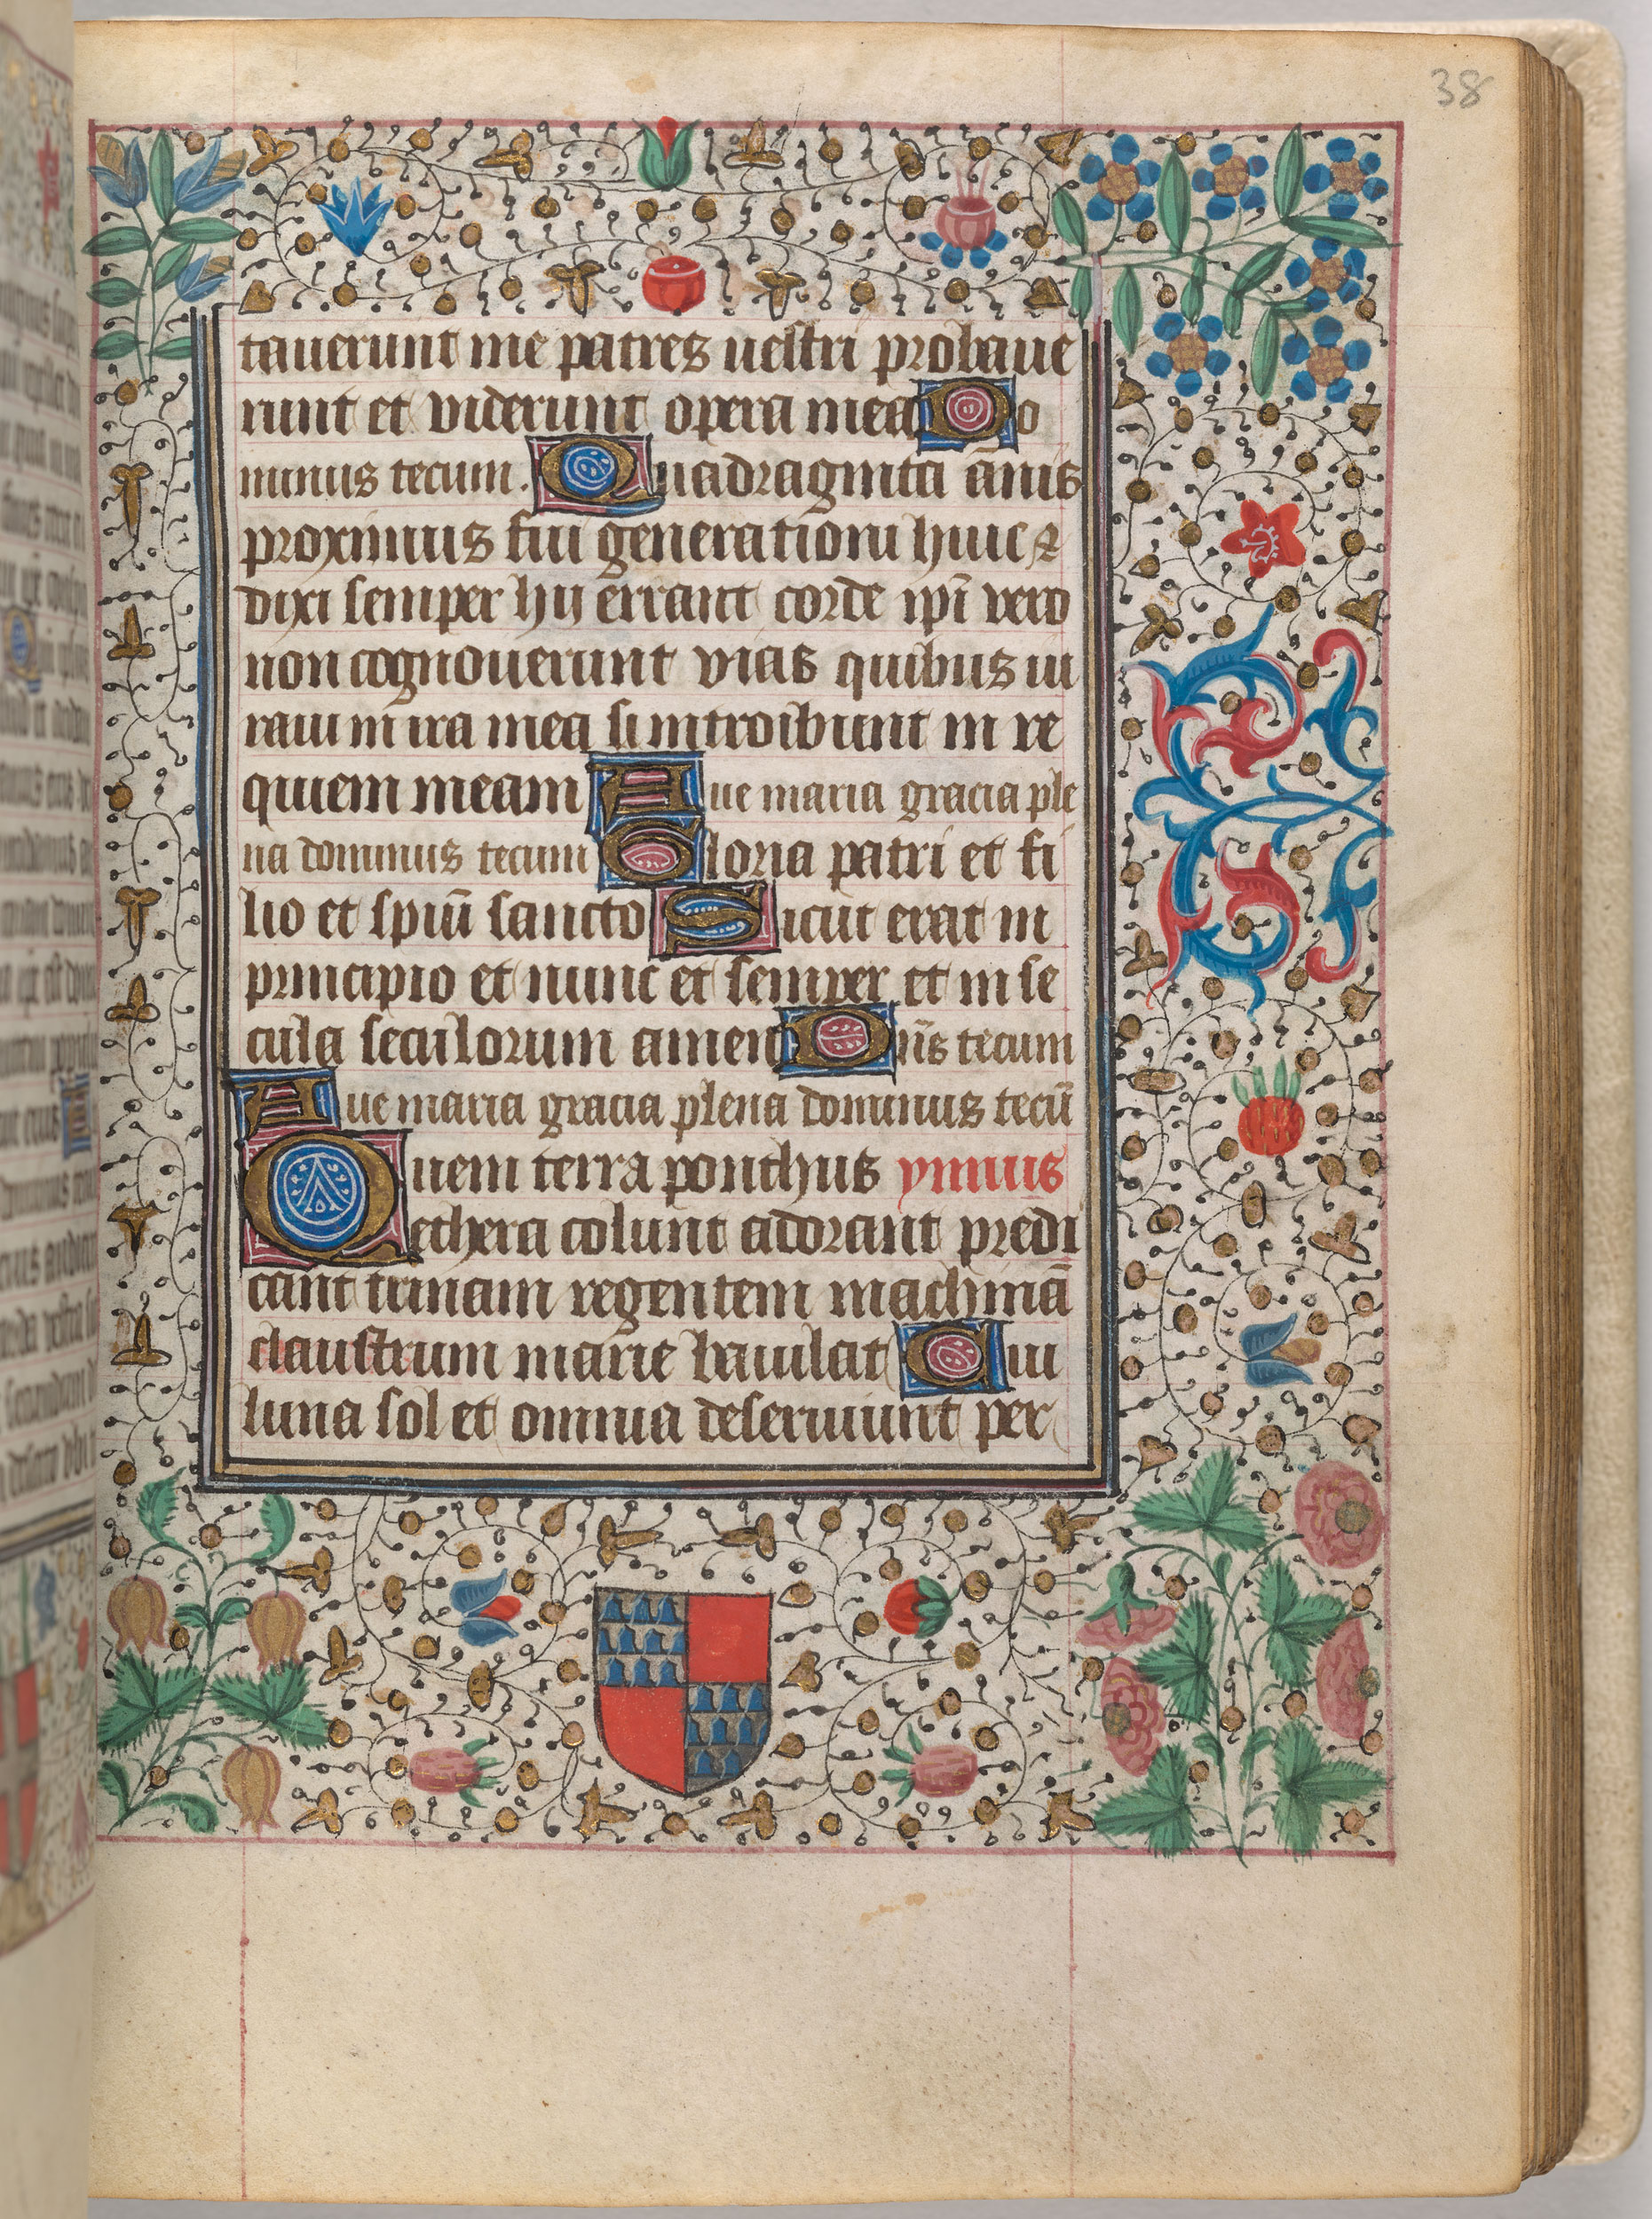 38
tauerunt me patres uestri probaue
runt et viderunt opera mea Do
minus tecum. Quadraginta ānis
proximus fui generationi huic ⁊
dixi semper hii errant corde ipī vero
non cognouerunt vias quibus iu
raui in ira mea si introibunt in re
quiem meam Aue maria gracia ple
na dominus tecum Gloria patri et fi
lio et spiū sancto Sicut erat in
principio et nunc et semper et in se
cula seculorum amen Dn̄s tecum
Aue maria gracia plena dominus tecū
Quem terra ponthus ymnus
ethera colunt adorant predi
cant trinam regentem machinā
claustrum marie baiulat Cui
luna sol et omnia deseruiunt per